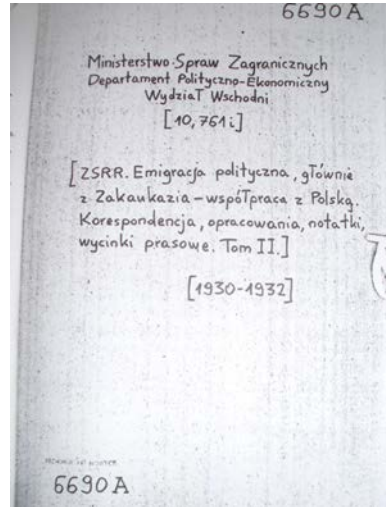 6690 A
Ministerstwo Spraw Zagranicznych
Departament Polityczno-Ekonomiczny
Wydział Wschodni
[10,761i]
[ZSRR. Emigracja polityczna, głównie
z Zakaukazia – współpraca z Polską.
Korespondencja, opracowania, notatki,
wycinki prasowe. Tom II.]
[1930-1932]
6690 A